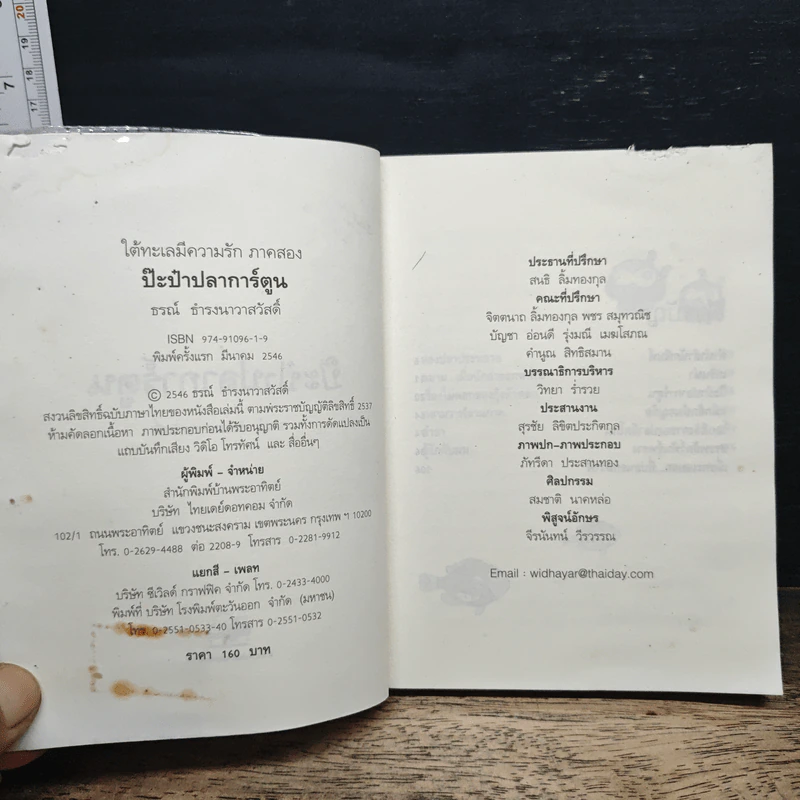 20
19
18
17
7
ใต้ทะเลมีความรัก ภาคสอง
ป๊ะป๋าปลาการ์ตูน
ธรณ์ ธำรงนาวาสวัสดิ์
ISBN 974-91096-1-9
พิมพ์ครั้งแรก มีนาคม 2546
© 2546 ธรณ์ ธำรงนาวาสวัสดิ์
สงวนลิขสิทธิ์ฉบับภาษาไทยของหนังสือเล่มนี้ ตามพระราชบัญญัติลิขสิทธิ์ 2537
ห้ามคัดลอกเนื้อหา ภาพประกอบก่อนได้รับอนุญาติ รวมทั้งการดัดแปลงเป็น
แถบบันทึกเสียง วิดิโอ โทรทัศน์ และ สื่ออื่นๆ
ผู้พิมพ์ - จำหน่าย
สำนักพิมพ์บ้านพระอาทิตย์
บริษัท ไทยเดย์ดอทคอม จำกัด
102/1 ถนนพระอาทิตย์ แขวงชนะสงคราม เขตพระนคร กรุงเทพ ฯ 10200
โทร. 0-2629-4488 ต่อ 2208-9 โทรสาร 0-2281-9912
แยกสี - เพลท
บริษัท ซีเวิลด์ กราฟฟิค จำกัด โทร. 0-2433-4000
พิมพ์ที่ บริษัท โรงพิมพ์ตะวันออก จำกัด (มหาชน)
โทร. 0-2551-0533-40 โทรสาร 0-2551-0532
ราคา 160 บาท
ประธานที่ปรึกษา
สนธิ ลิ้มทองกุล
คณะที่ปรึกษา
จิตตนาถ ลิ้มทองกุล พชร สมุทวณิช
บัญชา อ่อนดี รุ่งมณี เมฆโสภณ
คำนูณ สิทธิสมาน
บรรณาธิการบริหาร
วิทยา ร่ำรวย
ประสานงาน
สุรชัย ลิขิตประกิตกุล
ภาพปก-ภาพประกอบ
ภัทรีดา ประสานทอง
ศิลปกรรม
สมชาติ นาคหล่อ
พิสูจน์อักษร
จีรนันทน์ วีรวรรณ
Email : widhayar@thaiday.com